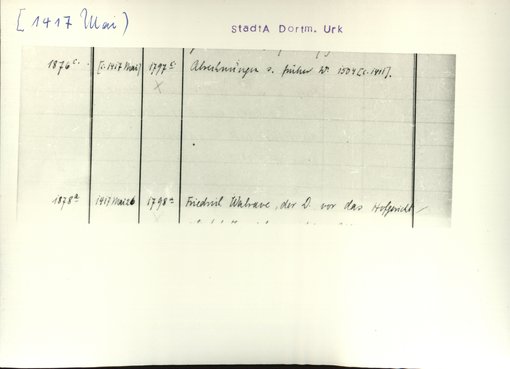 [1417 Mai)
StadtA Dortm. Urk
1876c. [c. 1417 Mai] 1797c. Abrechnungen s. früher Nr. 1504 [c. 1411].
x
1878a 1417 Mai 26 1798a Friedrich Walrave, der D. vor das Hofgericht